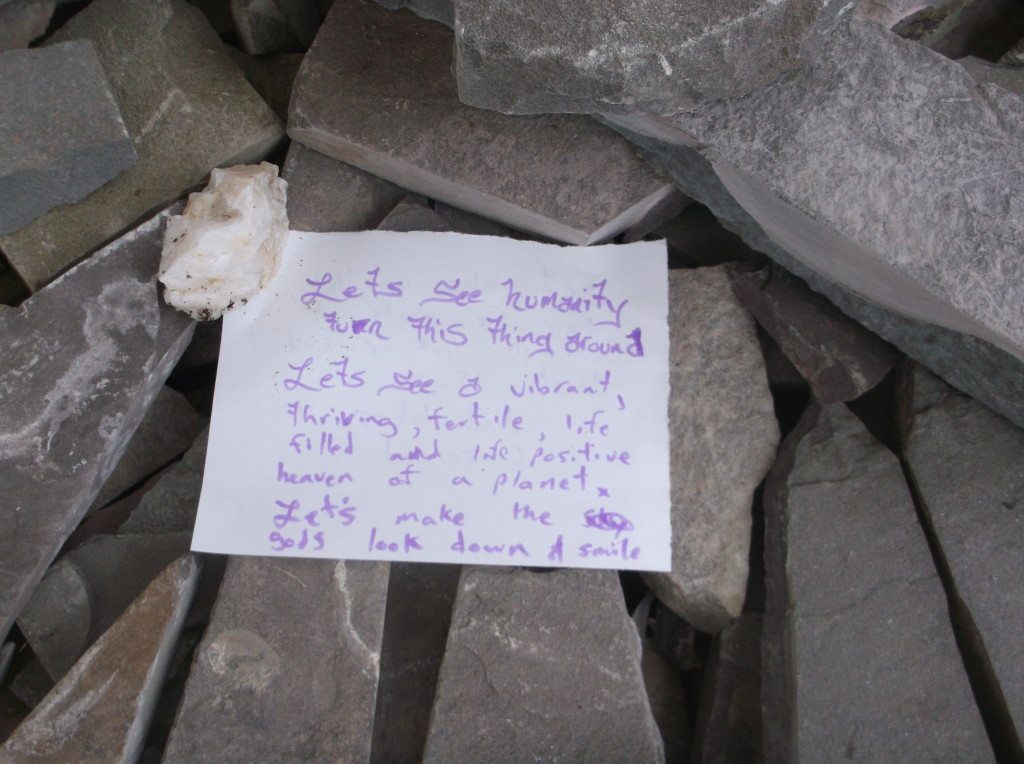 Lets See humanity
turn This Thing around
Lets See a vibrant,
Thriving, fertile, life
filled and life positive
heaven of a planet.
Let's make the
gods look down & smile